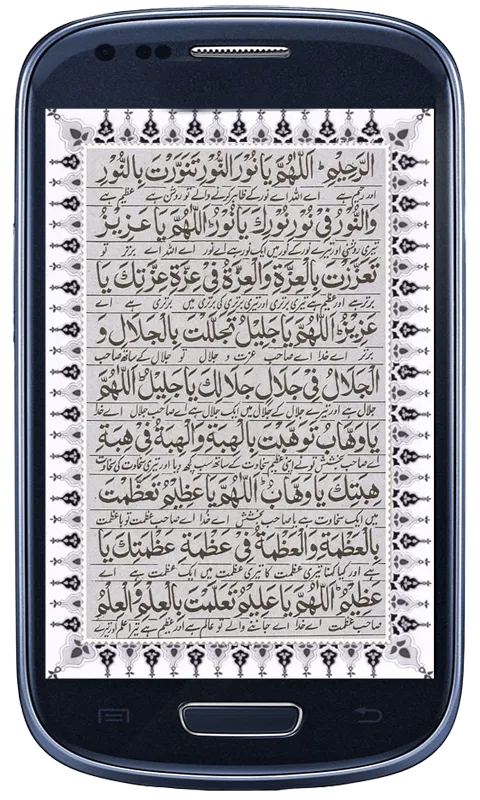 الرَّحِيْمِ ۝ اَللّٰهُمَّ يَا نُوْرَ النُّوْرِ تَنَوَّرْتَ بِالنُّوْرِ
اور رحیم ہے اے اللہ اے نور کے ظاہر کرنے والے تو روشن ہے عظیم ہے
وَالنُّوْرُ فِىْ نُوْرِ نُوْرِكَ يَا نُوْرُ اَللّٰهُمَّ يَا عَزِيْزُ
تیری روشنی اور تیرے نور کے نور میں ایک نور ہے اے نور اے اللہ اے برتر تو
تَعَزَّزْتَ بِالْعِزَّةِ وَالْعِزَّةُ فِىْ عِزَّةِ عِزَّتِكَ يَا
برتر ہے اور عظیم ہے تیری برتری اور تیری برتری کی برتری میں برتری ہے اے
عَزِيْزُ اَللّٰهُمَّ يَا جَلِيْلُ تَجَلَّلْتَ بِالْجَلَالِ وَ
برتر اے خدا اے صاحب عزت و جلال تو جلال کے ساتھ صاحب
الْجَلَالُ فِىْ جَلَالِ جَلَالِكَ يَا جَلِيْلُ اَللّٰهُمَّ
جلال ہے اور تیرے جلال کے جلال میں ایک جلال ہے اے صاحب جلال اے خدا
يَا وَهَّابُ تَوَهَّبْتَ بِالْهِبَةِ وَالْهِبَةُ فِىْ هِبَةِ
اے صاحب بخشش تو نے اپنی عظیم سخاوت کے ساتھ سب کچھ دیا اور تیری سخاوت کی سخاوت
هِبَتِكَ يَا وَهَّابُ اَللّٰهُمَّ يَا عَظِيْمُ تَعَظَّمْتَ
میں ایک سخاوت ہے یا صاحب بخشش اے خدا اے صاحب عظمت تو با عظمت
بِالْعَظَمَةِ وَالْعَظَمَةُ فِىْ عَظَمَةِ عَظَمَتِكَ يَا
ہے اور کیا کہنا تیری عظمت کا تیری عظمت میں ایک عظمت ہے اے
عَظِيْمُ اَللّٰهُمَّ يَا عَلِيْمُ تَعَلَّمْتَ بِالْعِلْمِ وَالْعِلْمُ
صاحب عظمت اے خدا اے جاننے والے تو عالم ہے اور عظیم ہے تیرا علم اور تیرے